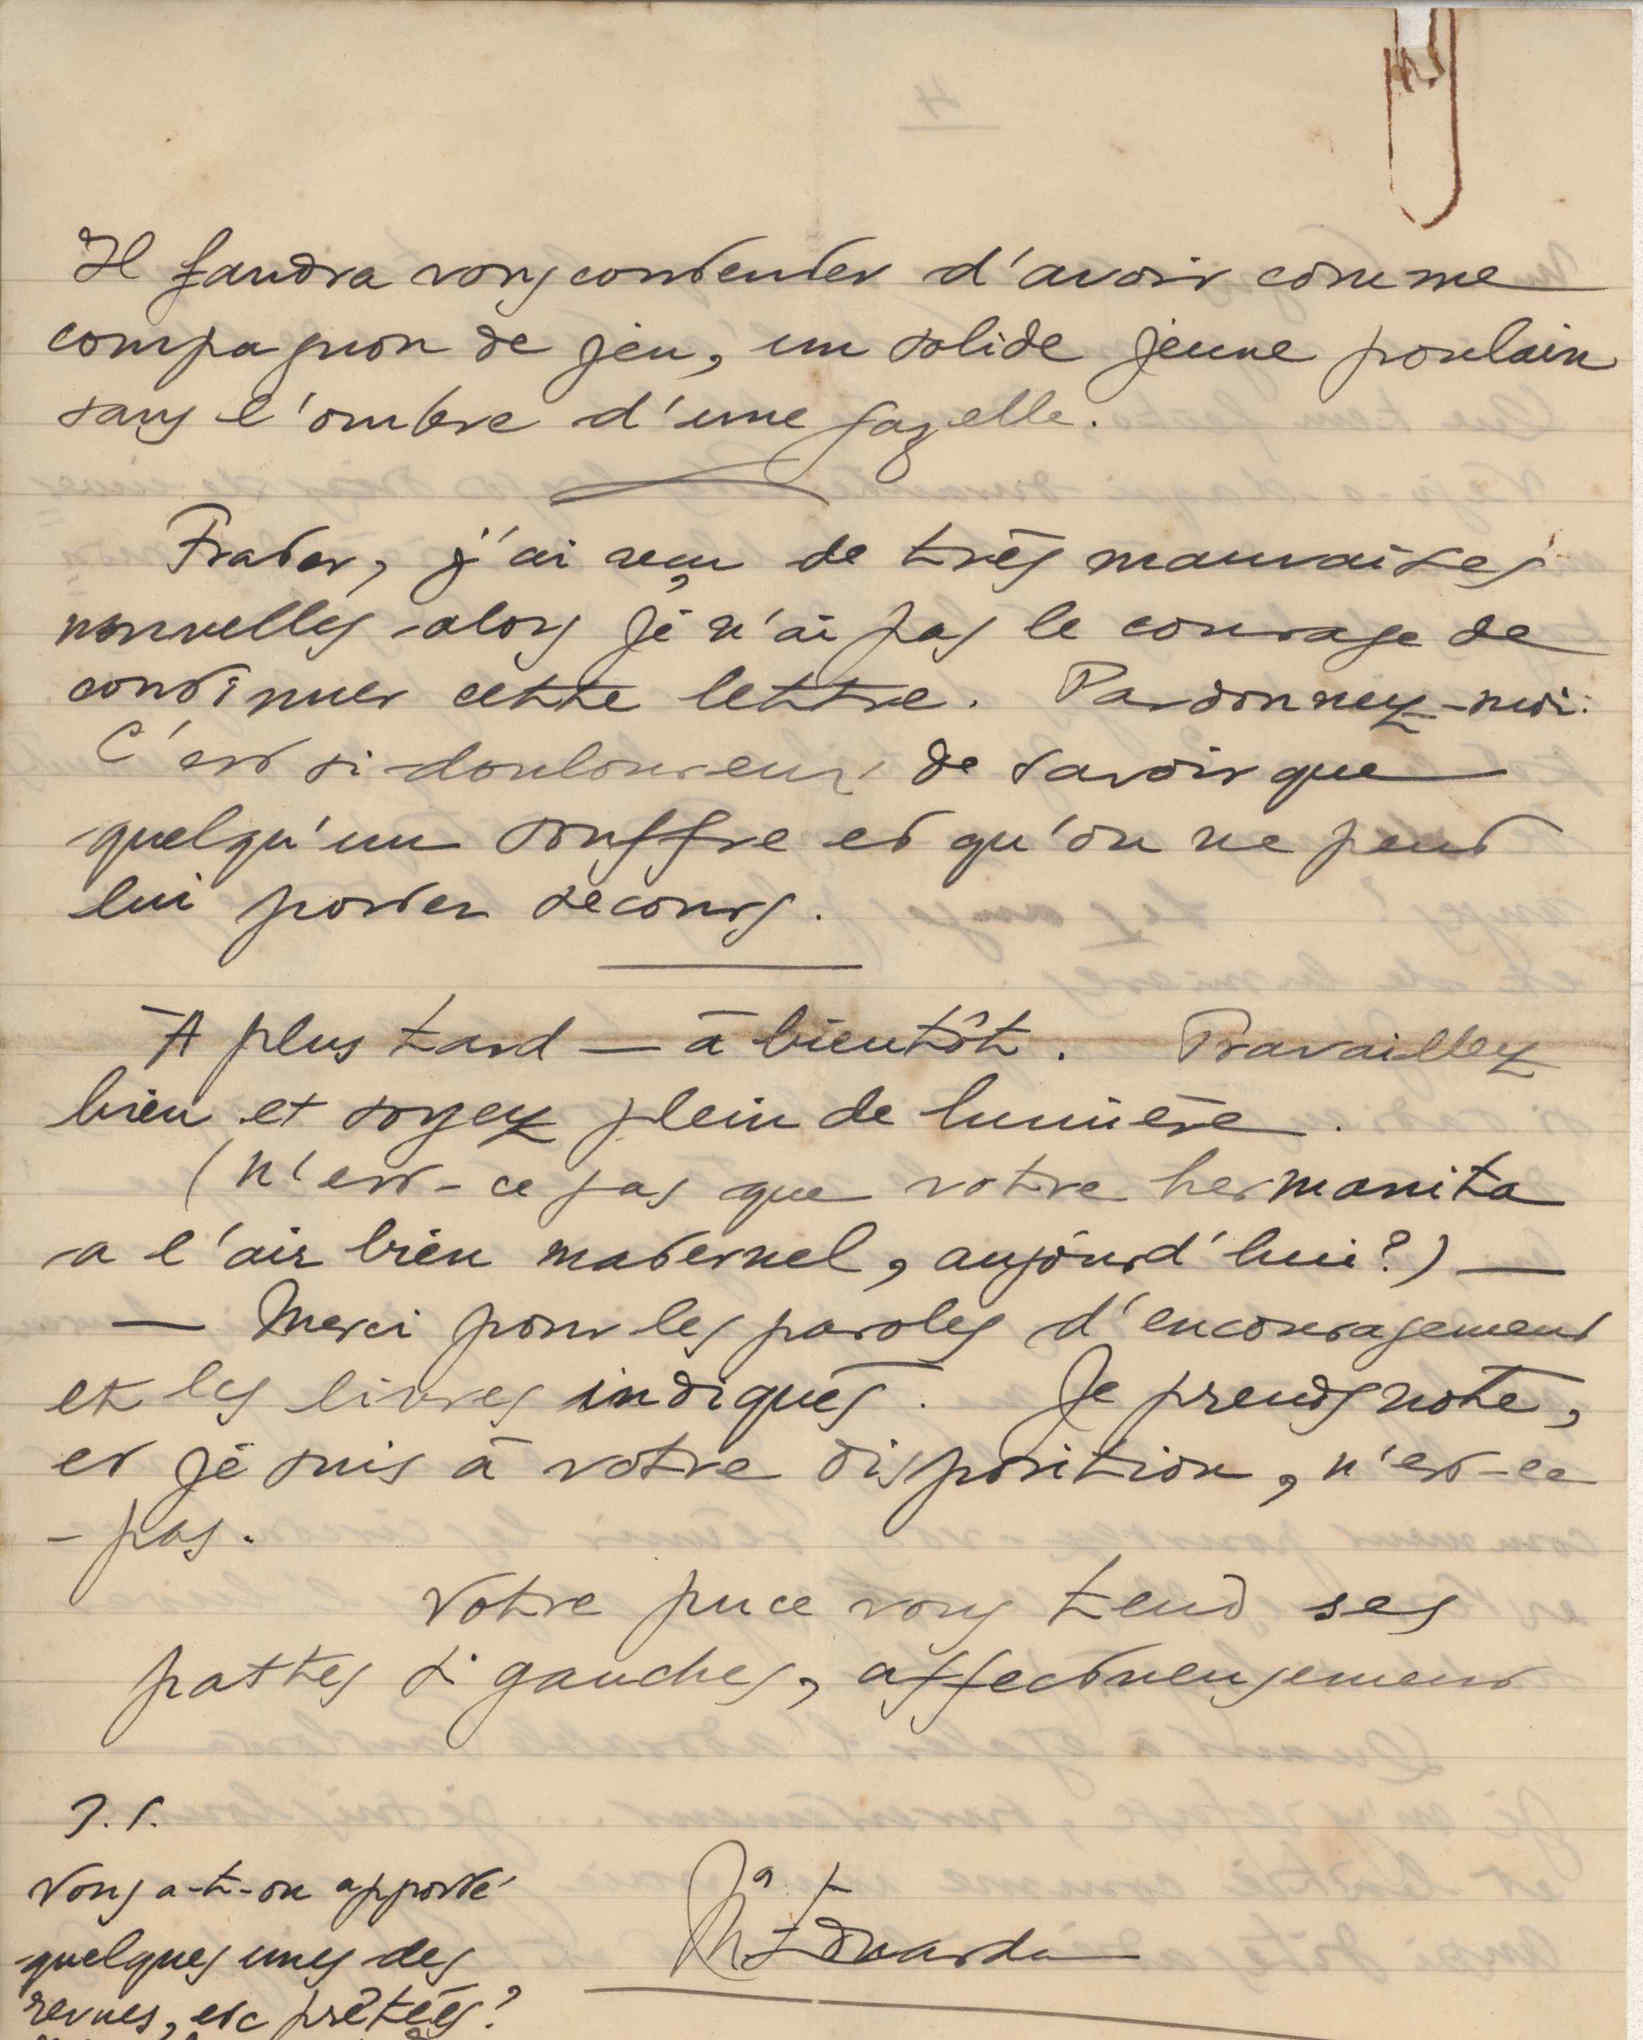 Il faudra vous contenter d'avoir comme
compagnon de jeu, un solide jeune poulain
sans l'ombre d'une gazelle.
Frater, j'ai reçu de très mauvaises
nouvelles alors je n'ai pas le courage de
continuer cette lettre. Pardonnez-moi.
C'est si douloureux de savoir que
quelqu'un souffre et qu'on ne peut
lui porter secours.
A plus tard — à bientôt. Travaillez
bien et soyez plein de lumière.
(n'est-ce pas que votre hermanita
a l'air bien maternel, aujourd'hui?) —
— Merci pour les paroles d'encouragement
et les livres indiqués. Je prends note,
et je suis à votre disposition, n'est-ce
-pas.
Votre puce vous tend ses
pattes si gauches, affectueusement
Mª Eduarda
P.S.
Vous a-t-on apporté
quelques unes des
revues, etc prêtées?